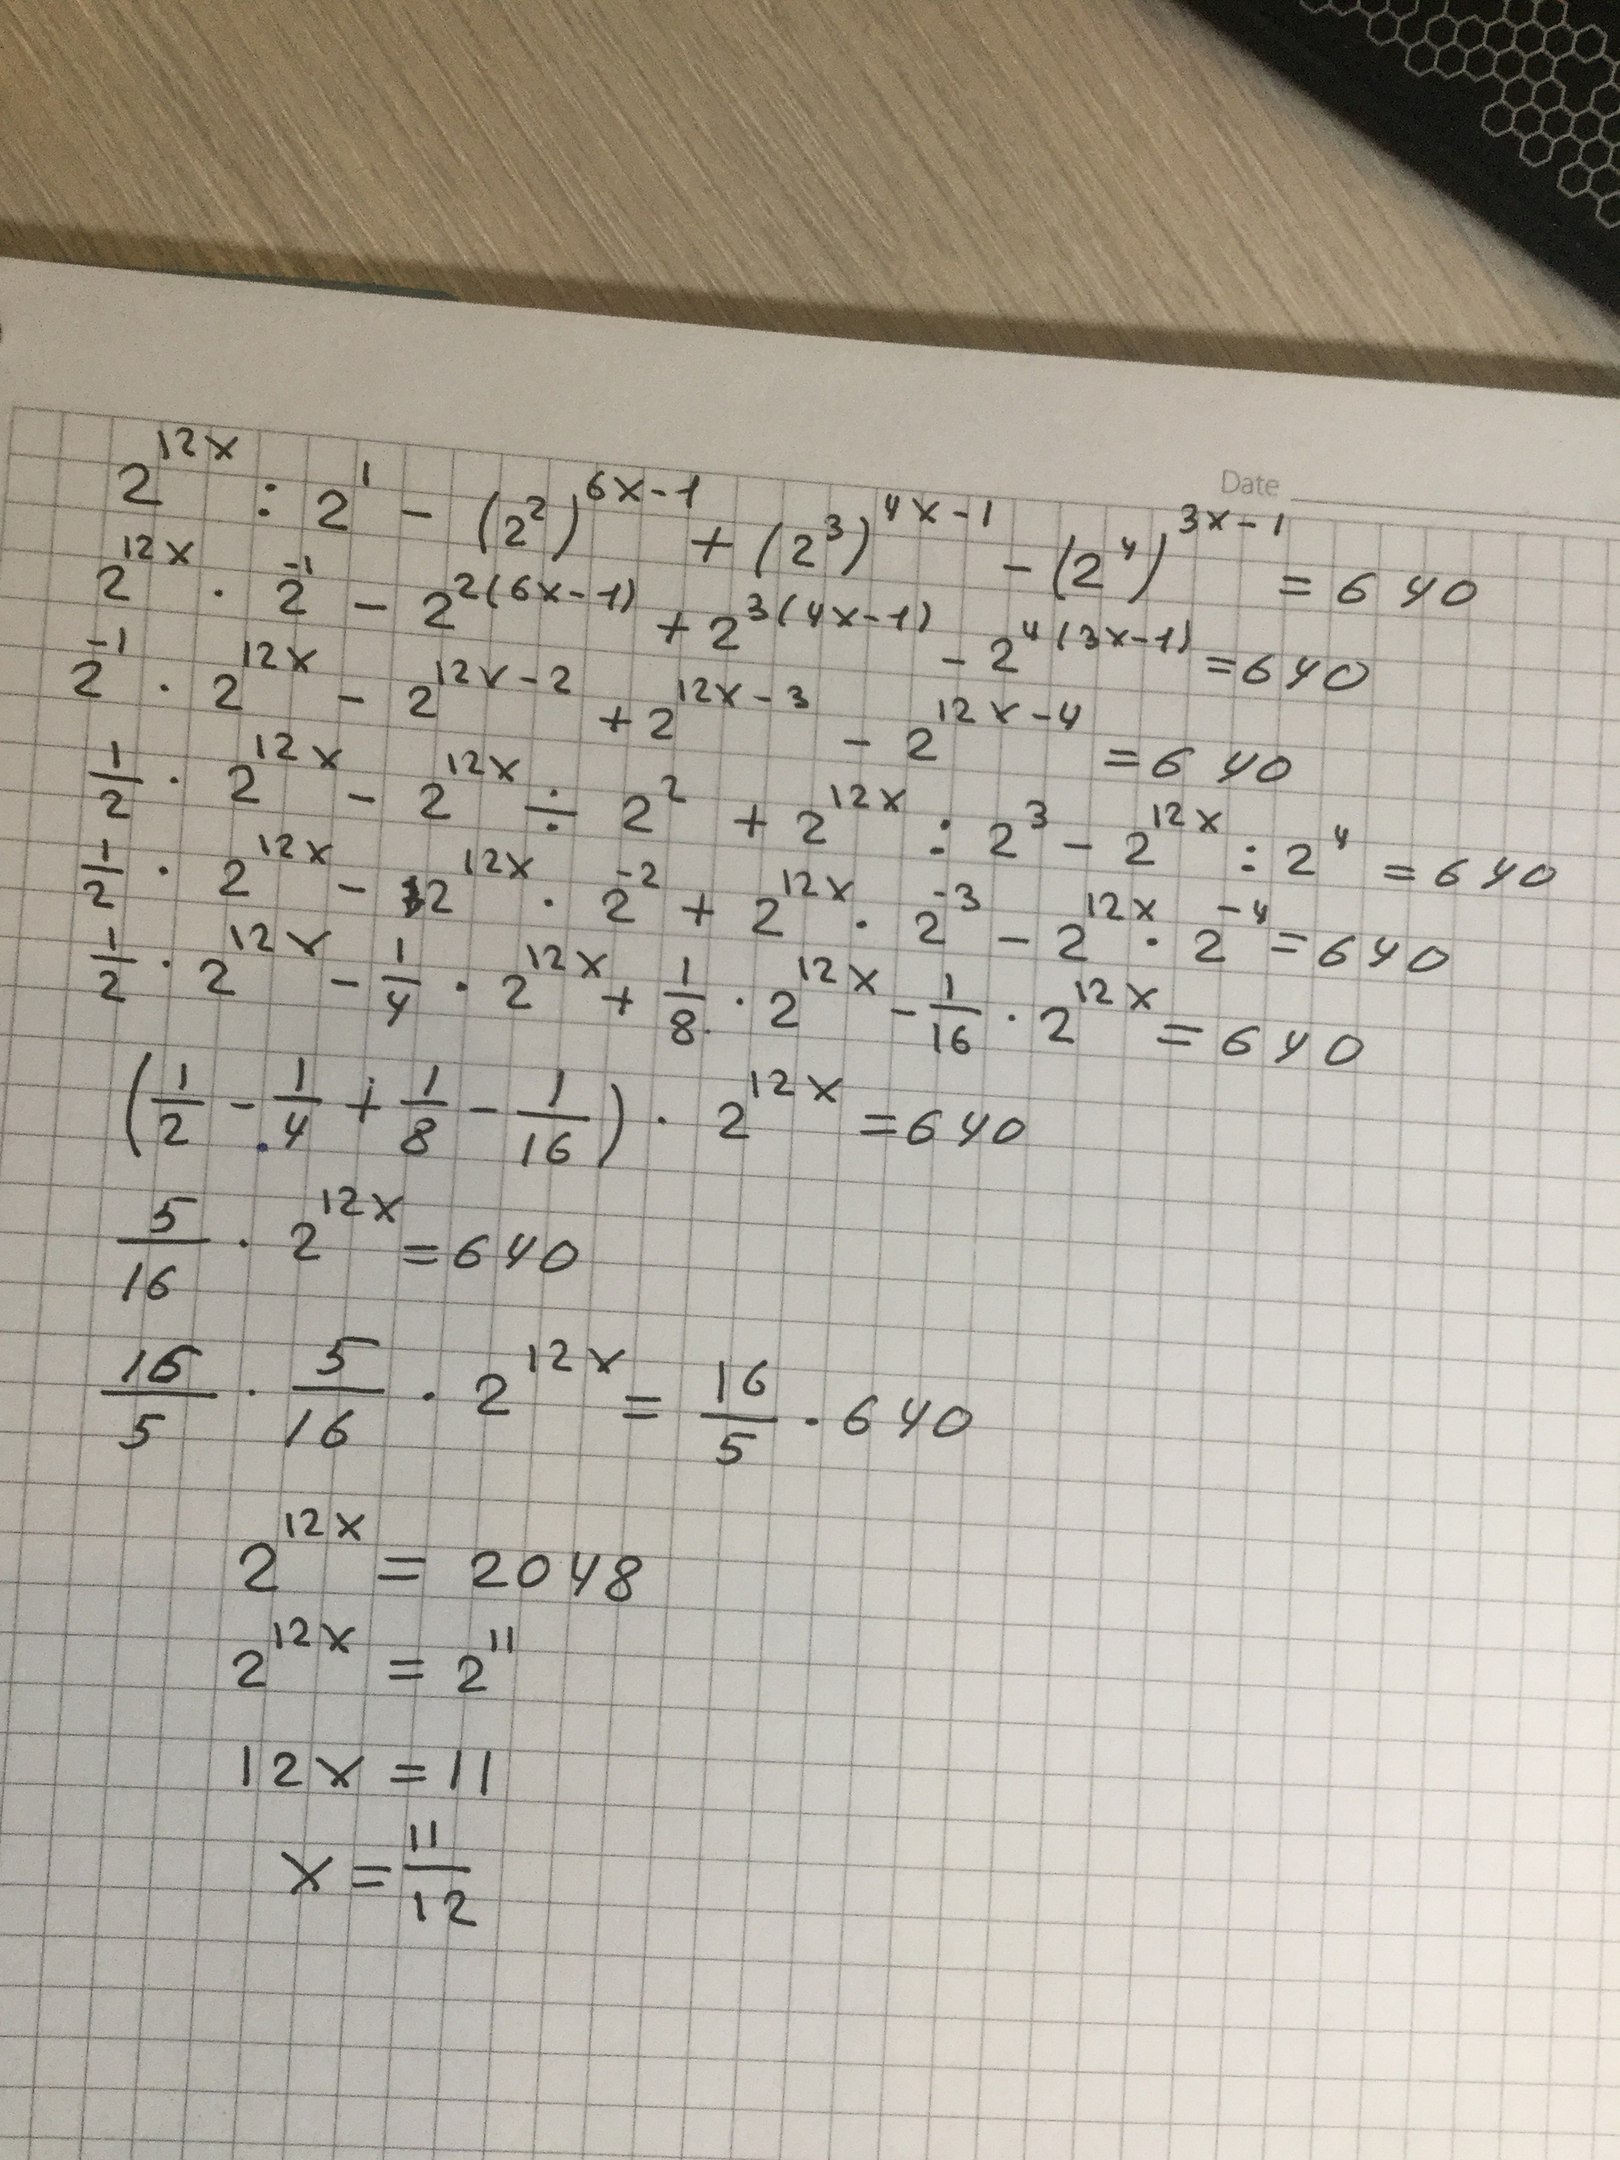 Date
2^{12x} : 2^1 - (2^2)^{6x-1} + (2^3)^{4x-1} - (2^4)^{3x-1} = 640
2^{12x} · 2^{-1} - 2^{2(6x-1)} + 2^{3(4x-1)} - 2^{4(3x-1)} = 640
2^{-1} · 2^{12x} - 2^{12x-2} + 2^{12x-3} - 2^{12x-4} = 640
1/2 · 2^{12x} - 2^{12x} ÷ 2^2 + 2^{12x} : 2^3 - 2^{12x} : 2^4 = 640
1/2 · 2^{12x} - 2^{12x} · 2^{-2} + 2^{12x} · 2^{-3} - 2^{12x} · 2^{-4} = 640
1/2 · 2^{12x} - 1/4 · 2^{12x} + 1/8 · 2^{12x} - 1/16 · 2^{12x} = 640
(1/2 - 1/4 + 1/8 - 1/16) · 2^{12x} = 640
5/16 · 2^{12x} = 640
16/5 · 5/16 · 2^{12x} = 16/5 · 640
2^{12x} = 2048
2^{12x} = 2^{11}
12x = 11
x = 11/12